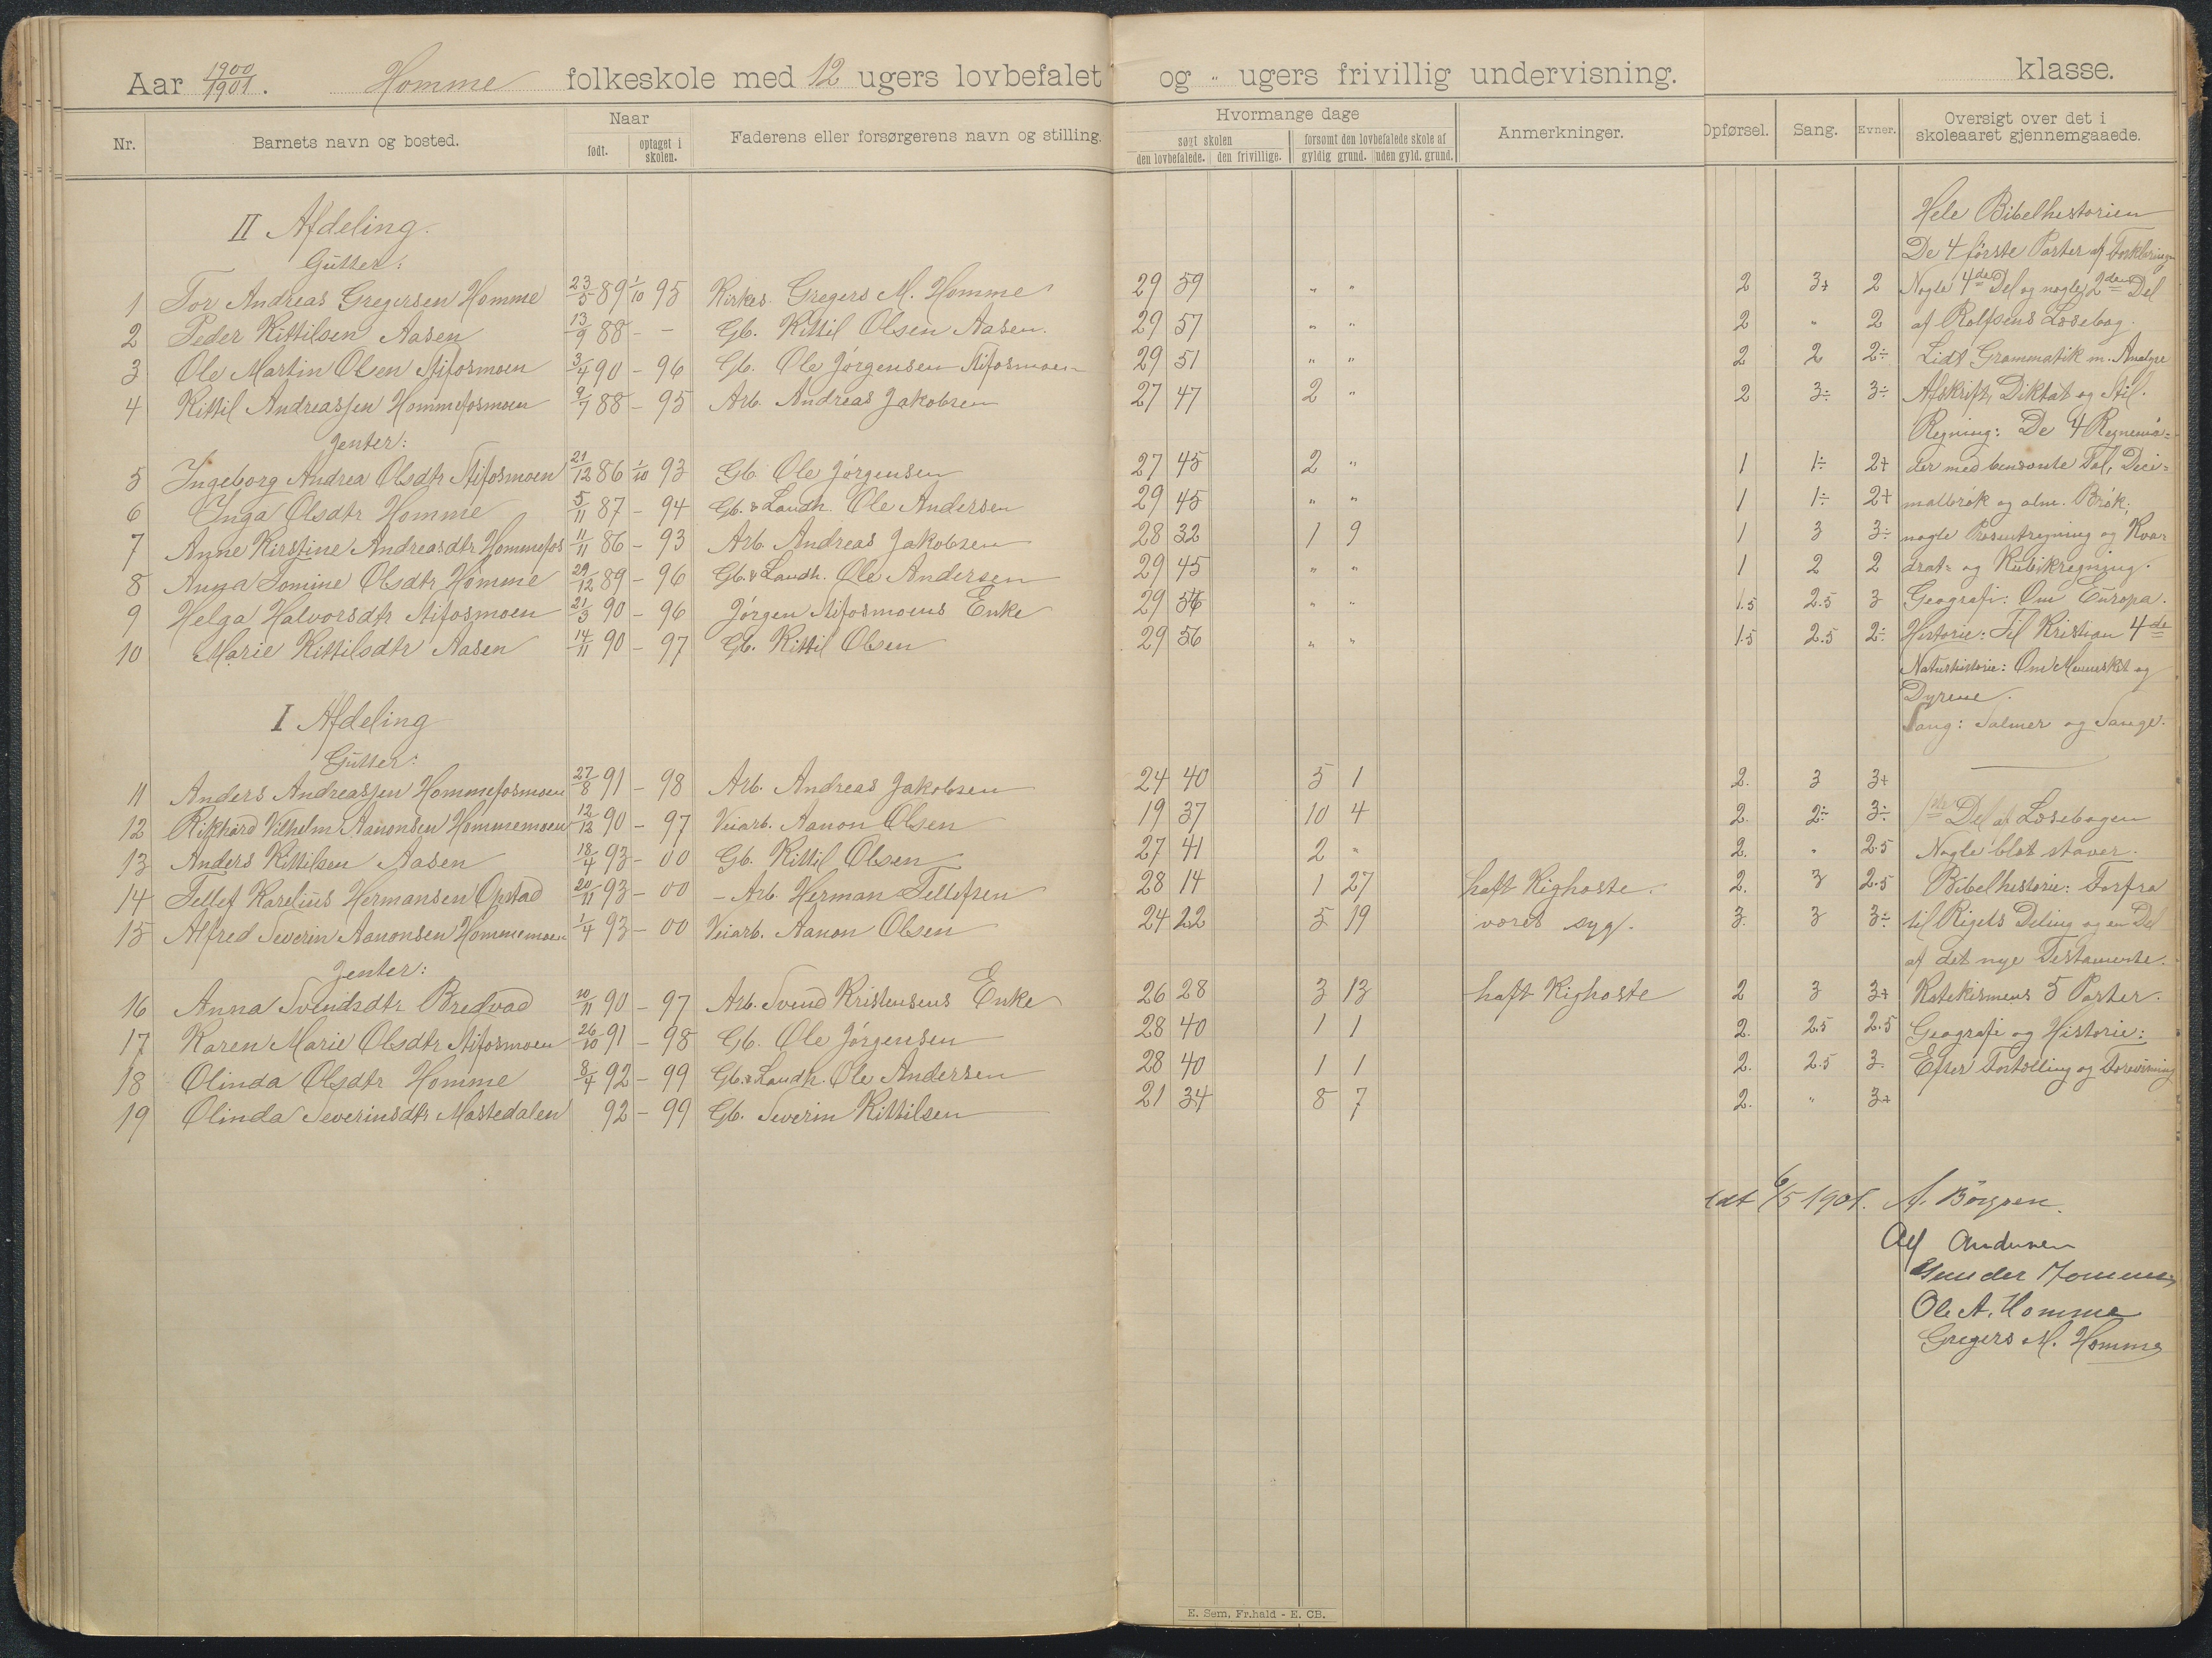 Aar 1900/1901. Homme folkeskole med 12 ugers lovbefalet og " ugers frivillig undervisning. klasse.
Nr. Barnets navn og bosted. Naar født. optaget i skolen. Faderens eller forsørgerens navn og stilling. Hvormange dage søgt skolen den lovbefalede. den frivillige. forsømt den lovbefalede skole af gyldig grund. uden gyld. grund. Anmerkninger. Opførsel. Sang. Evner. Oversigt over det i skoleaaret gjennemgaaede.
II Afdeling. Hele Bibelhistorien
Gutter: De 4 første Parter af Forklaringen
1 Tor Andreas Gregersen Homme 23/5 89 1/10 95 Kirkes. Gregers M. Homme 29 59 " " 2 3+ 2 Nogle 4de Del og nogle 2den Del
2 Peder Kittilsen Aasen 13/9 88 - - Gb. Kittil Olsen Aasen. 29 57 " " 2 " 2 af Rolfsens Læsebog.
3 Ole Martin Olsen Stifosmoen 3/4 90 - 96 Gb. Ole Jørgensen Stifosmoen 29 51 " " 2 2 2÷ Lidt Grammatik m. Analyse
4 Kittil Andreassen Hommefosmoen 9/7 88 - 95 Arb. Andreas Jakobsen 27 47 2 " 2 3÷ 3÷ Afskrift, Diktat og Stil.
Jenter: Regning: De 4 Regnemaa-
5 Ingeborg Andrea Olsdtr Stifosmoen 21/12 86 1/10 93 Gb. Ole Jørgensen 27 45 2 " 1 1÷ 2+ der med benævnte Tal, Deci-
6 Inga Olsdtr Homme 5/11 87 - 94 Gb. & Landh. Ole Andersen 29 45 " " 1 1÷ 2+ malbrøk og alm. Brøk;
7 Anne Kirstine Andreasdtr Hommefos 11/11 86 - 93 Arb. Andreas Jakobsen 28 32 1 9 1 3 3÷ nogle Prosentregning og Kva-
8 Anna Tomine Olsdtr Homme 29/12 89 - 96 Gb. & Landh. Ole Andersen 29 45 " " 1 2 2 drat- og Kubikregning.
9 Helga Halvorsdtr Stifosmoen 21/3 90 - 96 Jørgen Stifosmoens Enke 29 56 " " 1.5 2.5 3 Geografi: Om Europa.
10 Marie Kittilsdtr Aasen 14/11 90 - 97 Gb. Kittil Olsen 29 56 " " 1.5 2.5 2÷ Historie: Til Kristian 4de
Naturhistorie: Om Mennesket og
Dyrene.
I Afdeling Sang: Salmer og Sange.
Gutter:
11 Anders Andreassen Hommefosmoen 27/8 91 - 98 Arb. Andreas Jakobsen 24 40 5 1 2. 3 3+
12 Rikhard Vilhelm Aanonsen Hommemoen 12/12 90 - 97 Veiarb. Aanon Olsen 19 37 10 4 2. 2÷ 3÷ 1ste Del af Læsebogen
13 Anders Kittilsen Aasen 18/4 93 - 00 Gb. Kittil Olsen 27 41 2 " 2. " 2.5 Nogle blot staver.
14 Tellef Karelius Hermansen Opstad 20/11 93 - 00 - Arb. Herman Tellefsen 28 14 1 27 haft Kighoste. 2. 3 2.5 Bibelhistorie: Forfra
15 Alfred Severin Aanonsen Hommemoen 1/4 93 - 00 Veiarb. Aanon Olsen 24 22 5 19 været syg. 3. 3 3÷ til Rigets Deling og en Del
Jenter: af det nye Testamente.
16 Anna Svendsdtr Bredvad 10/11 90 - 97 Arb. Svend Kristensens Enke 26 28 3 13 haft Kighoste 2 3 3+ Katekismens 5 Parter.
17 Karen Marie Olsdtr Stifosmoen 26/10 91 - 98 Gb. Ole Jørgensen 28 40 1 1 2. 2.5 2.5 Geografi og Historie:
18 Olinda Olsdtr Homme 8/4 92 - 99 Gb. & Landh. Ole Andersen 28 40 1 1 2. 2.5 3 Efter Fortælling og Forevisning
19 Olinda Severinsdtr Mastedalen 92 - 99 Gb. Severin Kittilsen 21 34 8 7 2. " 3+
6/5 1901. A. Børgsen.
Alf Andersen
Gunder Homme
Ole A. Homme
Gregers M. Homme
E. Sem, Fr.hald - E. CB.